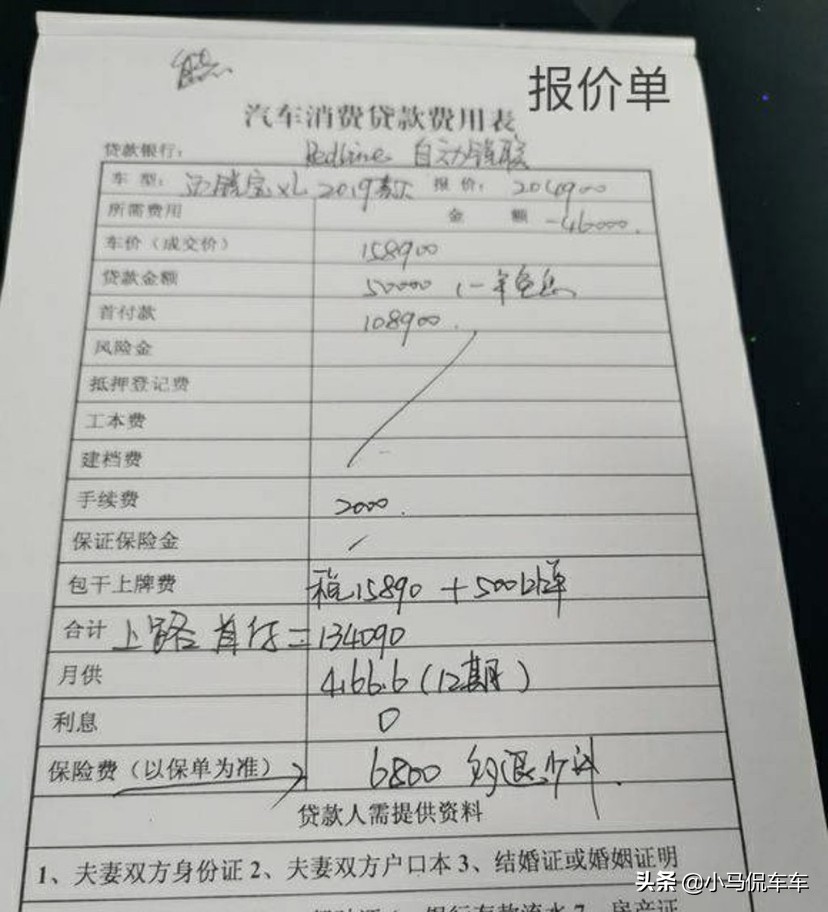 报价单
汽车消费贷款费用表
贷款银行： Redline 自动锐联
车 型： 迈锐宝XL 2019款 报 价： 204900
所需费用 金 额 -46000.
车价（成交价） 158900
贷款金额 50000 （一年免息
首付款 108900.
风险金
抵押登记费
工本费
建档费
手续费 2000.
保证保险金
包干上牌费 税15890 + 500上牌
合计 上路首付=134090
月供 4166.6（12期）
利息 0
保险费（以保单为准） 6800 多退少补.
贷款人需提供资料
1、夫妻双方身份证 2、夫妻双方户口本 3、结婚证或婚姻证明
银行存款流水 7、房产证
头条 @小马侃车车